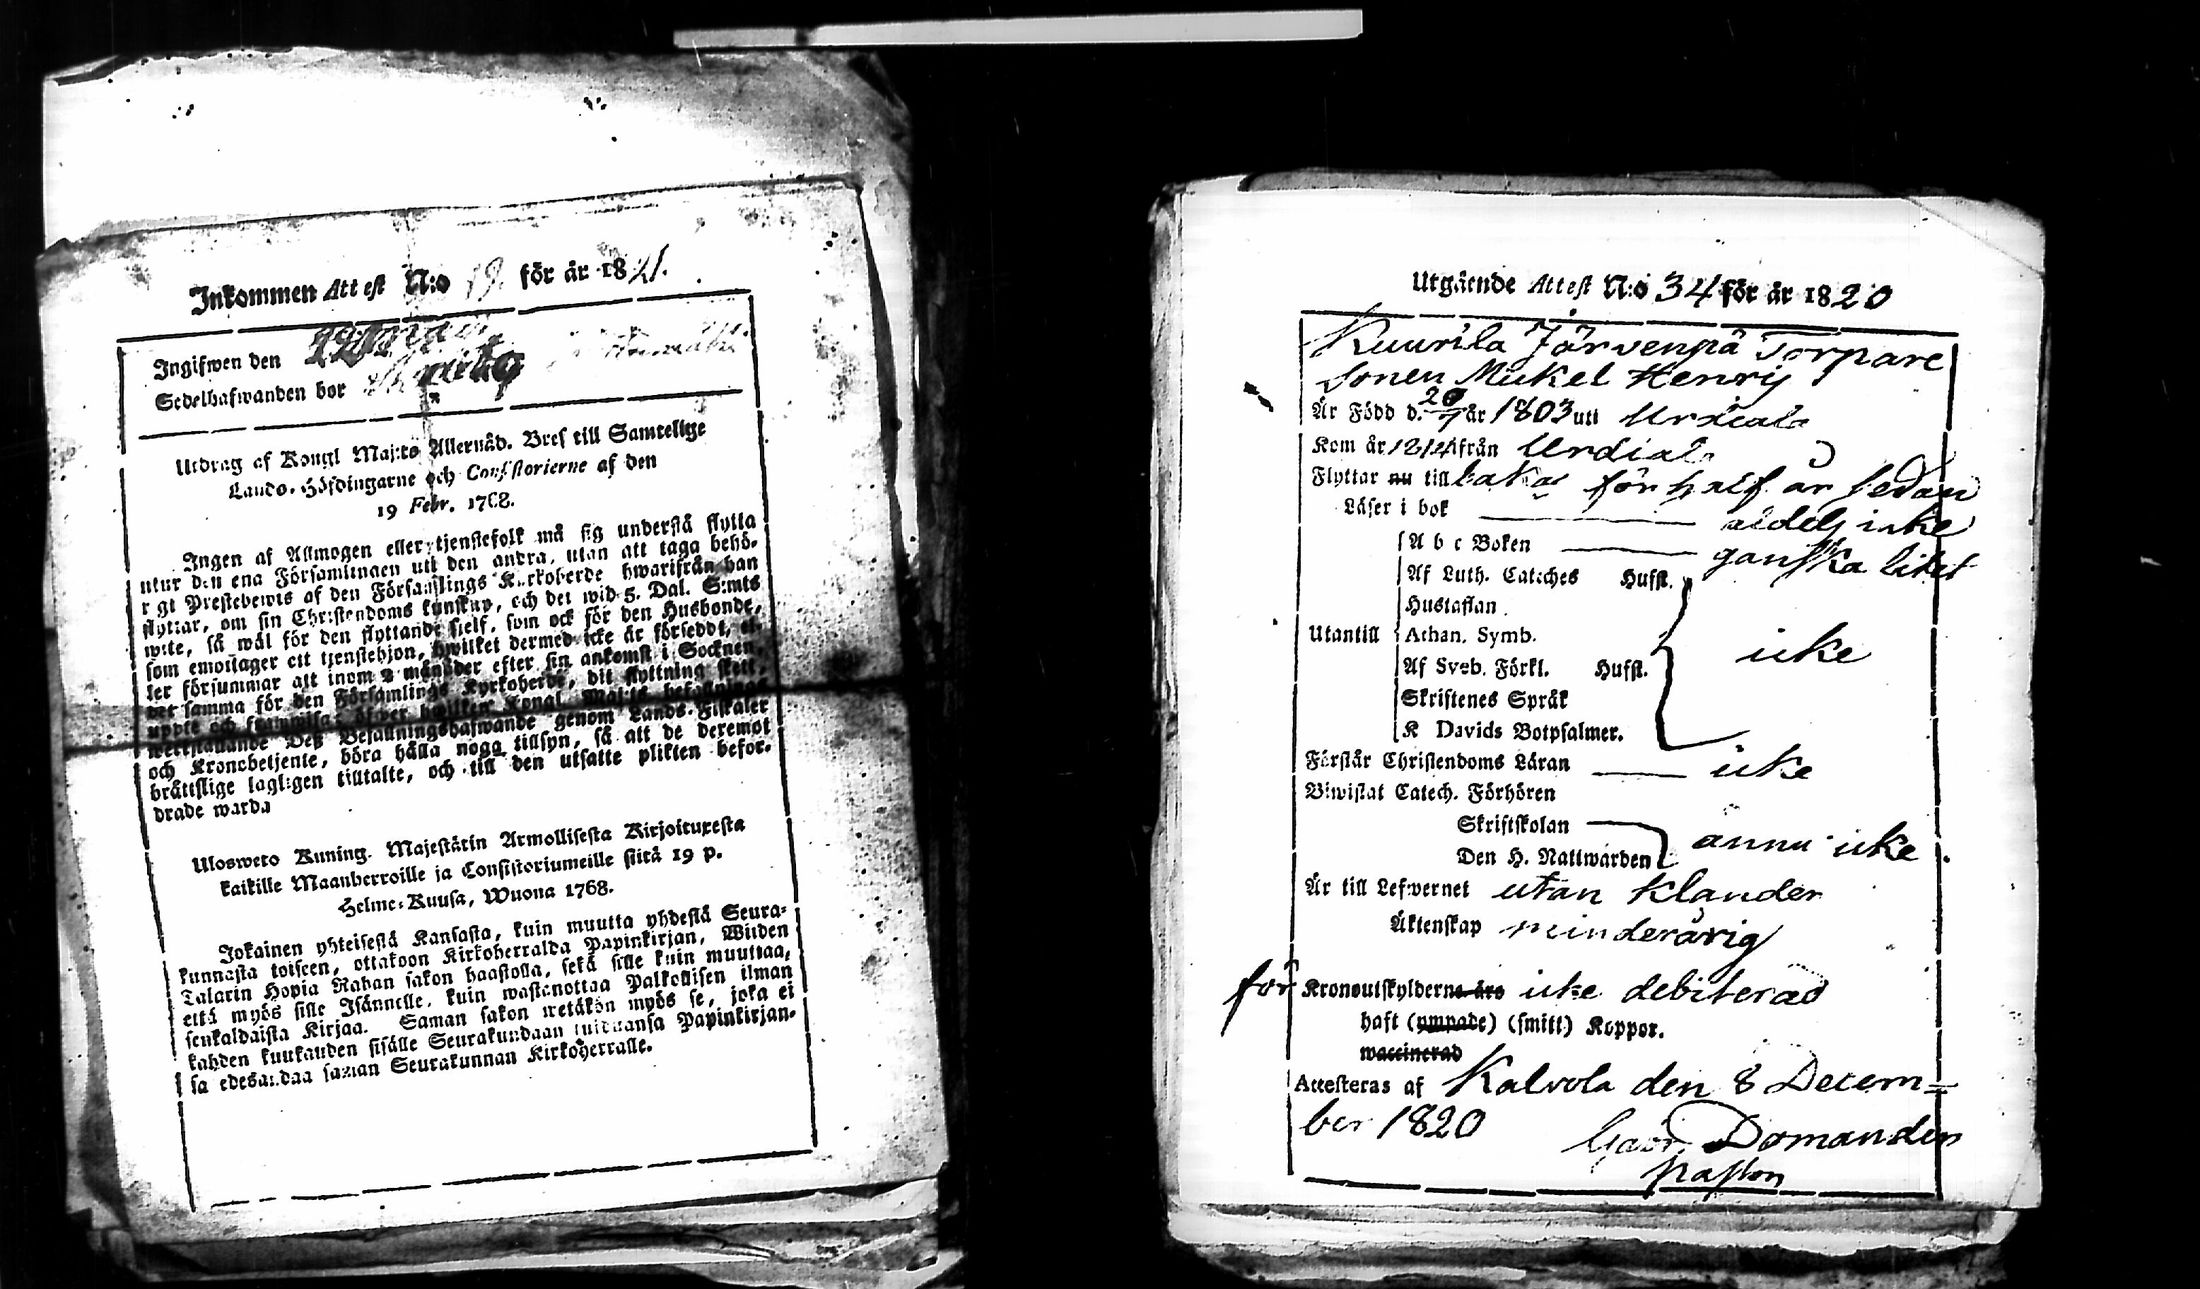 Inkommen Attest N:o 19. för år 1821.
Ingifwen den
Sedelhafwanden bor
Utdrag af Kongl Maj:ts Allernåd. Bref till Samtelige
Lands-Höfdingarne och Consistorierne af den
19 Febr. 1768.
Ingen af Allmogen eller tjenstefolk må sig understå flytta
utur den ena Församlingen uti den andra, utan att taga behö-
rigt Prestebewis af den Församlings Kyrkoherde hwarifrån han
flyttar, om sin Christendoms kunskap, och det wid 5. Dal. S:mts
wite, så wäl för den flyttande sielf, som ock för den Husbonde,
som emottager ett tjenstehjon, hwilket dermed icke är försedt, el-
ler försummar att inom 2 månader efter sin ankomst i Socknen,
det samma för den Församlings Kyrkoherde, dit flyttning skett,
uppte och framwisa; öfwer hwilken Kongl. Maj:ts befallnings
werkställande Deß Befallningshafwande genom Lands-Fiskaler
och Kronobetjente, böra hålla noga tillsyn, så att de deremot
brättslige lagligen tilltalte, och till den utsatte plikten befor-
drade warda
Ulosweto Kuning. Majestätin Armollisesta Kirjoituxesta
kaikille Maanherroille ja Consistoriumeille siitä 19 p.
Helme-Kuusa, Wuona 1768.
Jokainen yhteisestä Kansasta, kuin muutta yhdestä Seura-
kunnasta toiseen, ottakoon Kirkoherralda Papinkirjan, Wiiden
Talarin Hopia Rahan sakon haastolla, sekä sille kuin muuttaa,
että myös sille Isännelle, kuin wastanottaa Palkollisen ilman
senkaldaista Kirjaa. Saman sakon wetäkön myös se, joka ei
kahden kuukauden sisälle Seurakundaan tulduansa Papinkirjan-
sa edesandaa saman Seurakunnan Kirkoherralle.
Utgående Attest N:o 34 för år 1820
Kuurila Järvenpä Torpare
sonen Mickel Henrij
Är Född d. 20/7 år 1803 uti Urdiala
Kom år 1814 ifrån Urdiala
Flyttar nu tillbaka för half år sedan
Läser i bok aldels icke
A b c Boken ganska litet
Af Luth. Cateches Hufst.
Hustaflan
Utantill Athan. Symb. icke
Af Sveb. Förkl. Hufst.
Skriftenes Språk
K Davids Botpsalmer.
Förstår Christendoms Läran icke
Biwistat Catech. Förhören
Skriftskolan
Den H. Nattwarden ännu icke
Är till Lefwernet utan klander
Äktenskap minderårig
för Kronoutskylderne års icke debiterad
haft (ympade) (smitt) Koppor.
waccinerad
Attesteras af Kalvola den 8 Decem=
ber 1820
Gabr. Domander
Pastor